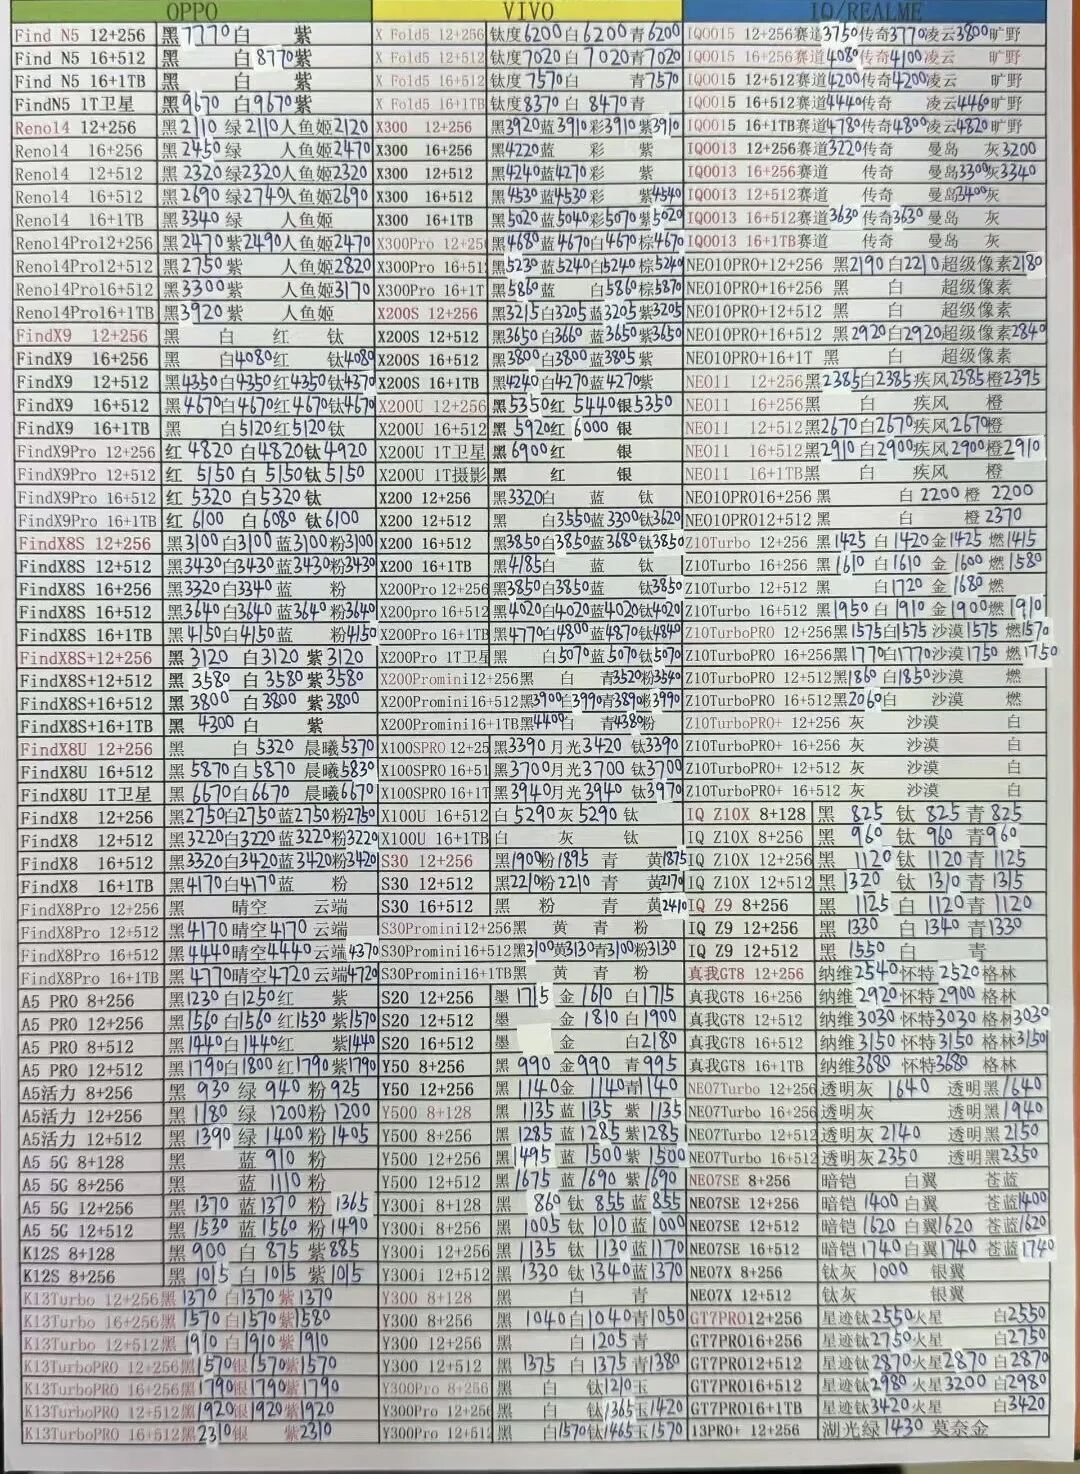 OPPO VIVO IQ/REALME
Find N5 12+256 黑7770白 紫 X Fold5 12+256 钛度6200白6200青6200 IQOO15 12+256赛道3750传奇3770凌云3800旷野
Find N5 16+512 黑 白8770紫 X Fold5 12+512 钛度7020白7020青7020 IQOO15 16+256赛道4080传奇4100凌云 旷野
Find N5 16+1TB 黑 白 紫 X Fold5 16+512 钛度7570白 青7570 IQOO15 12+512赛道4200传奇4200凌云 旷野
FindN5 1T卫星 黑9670白9670紫 X Fold5 16+1TB 钛度8370白8470青 IQOO15 16+512赛道4440传奇 凌云4460旷野
Reno14 12+256 黑2110绿2110人鱼姬2120 X300 12+256 黑3920蓝3910彩3910紫3910 IQOO15 16+1TB赛道4780传奇4800凌云4820旷野
Reno14 16+256 黑2450绿 人鱼姬2470 X300 16+256 黑4220蓝 彩 紫 IQOO13 12+256赛道3220传奇 曼岛 灰3200
Reno14 12+512 黑2320绿2320人鱼姬2320 X300 12+512 黑4240蓝4270彩 紫 IQOO13 16+256赛道 传奇 曼岛3300灰3340
Reno14 16+512 黑2690绿2740人鱼姬2690 X300 16+512 黑4530蓝4530彩 紫4540 IQOO13 12+512赛道 传奇 曼岛3400灰
Reno14 16+1TB 黑3340绿 人鱼姬 X300 16+1TB 黑5020蓝5040彩5070紫5020 IQOO13 16+512赛道3630传奇3630 曼岛 灰
Reno14Pro12+256 黑2470紫2490人鱼姬2470 X300Pro 12+256 黑4680蓝4670白4670棕4670 IQOO13 16+1TB赛道 传奇 曼岛 灰
Reno14Pro12+512 黑2750紫 人鱼姬2820 X300Pro 16+512 黑5230蓝5240白5240棕5240 NEO10PRO+12+256 黑2190白2210超级像素2180
Reno14Pro16+512 黑3300紫 人鱼姬3170 X300Pro 16+1T 黑5860蓝 白5860棕5870 NEO10PRO+16+256 黑 白 超级像素
Reno14Pro16+1TB 黑3920紫 人鱼姬 X200S 12+256 黑3215白3205蓝3205紫3205 NEO10PRO+12+512 黑 白 超级像素
FindX9 12+256 黑 白 红 钛 X200S 12+512 黑3650白3660蓝3650紫3650 NEO10PRO+16+512 黑2920白2920超级像素2840
FindX9 16+256 黑 白4080红 钛4080 X200S 16+512 黑3800白3800蓝3805紫 NEO10PRO+16+1T 黑 白 超级像素
FindX9 12+512 黑4350白4350红4350钛4370 X200S 16+1TB 黑4240白4270蓝4270紫 NEO11 12+256黑2385白2385疾风2385橙2395
FindX9 16+512 黑4670白4670红4670钛4670 X200U 12+256 黑5350红5440银5350 NEO11 16+256黑 白 疾风 橙
FindX9 16+1TB 黑 白5120红5120钛 X200U 16+512 黑5920红6000银 NEO11 12+512黑2670白2670疾风2670橙
FindX9Pro 12+256 红4820白4820钛4920 X200U 1T卫星 黑6900红 银 NEO11 16+512黑2910白2900疾风2900橙2910
FindX9Pro 12+512 红5150白5150钛5150 X200U 1T摄影 黑 红 银 NEO11 16+1TB黑 白 疾风 橙
FindX9Pro 16+512 红5320白5320钛 X200 12+256 黑3320白 蓝 钛 NEO10PRO16+256 黑 白2200橙2200
FindX9Pro 16+1TB 红6100白6080钛6100 X200 12+512 黑 白3550蓝3300钛3620 NEO10PRO12+512 黑 白 橙2370
FindX8S 12+256 黑3100白3100蓝3100粉3100 X200 16+512 黑3850白3850蓝3680钛3850 Z10Turbo 12+256 黑1425白1420金1425燃1415
FindX8S 12+512 黑3430白3430蓝3430粉3430 X200 16+1TB 黑4185白 蓝 钛 Z10Turbo 16+256 黑1610白1610金1600燃1580
FindX8S 16+256 黑3320白3340蓝 粉 X200Pro 12+256 黑3850白3850蓝 钛3850 Z10Turbo 12+512 黑 白1720金1680燃
FindX8S 16+512 黑3640白3640蓝3640粉3640 X200pro 16+512 黑4020白4020蓝4020钛4020 Z10Turbo 16+512 黑1950白1910金1900燃1910
FindX8S 16+1TB 黑4150白4150蓝 粉4150 X200Pro 16+1TB 黑4770白4800蓝4870钛4840 Z10TurboPRO 12+256黑1575白1575沙漠1575燃1570
FindX8S+12+256 黑3120白3120紫3120 X200Pro 1T卫星 黑 白5070蓝5070钛5070 Z10TurboPRO 16+256黑1770白1770沙漠1750燃1750
FindX8S+12+512 黑3580白3580紫3580 X200Promini12+256黑 白 青3520粉3540 Z10TurboPRO 12+512黑1860白1850沙漠 燃
FindX8S+16+512 黑3800白3800紫3800 X200Promini16+512黑3900白3990青3890粉3990 Z10TurboPRO 16+512黑2060白 沙漠 燃
FindX8S+16+1TB 黑4300白 紫 X200Promini16+1TB黑4400白 青4380粉 Z10TurboPRO+ 12+256 灰 沙漠 白
FindX8U 12+256 黑 白5320晨曦5370 X100SPRO 12+25 黑3390月光3420钛3390 Z10TurboPRO+ 16+256 灰 沙漠 白
FindX8U 16+512 黑5870白5870晨曦5830 X100SPRO 16+51 黑3700月光3700钛3700 Z10TurboPRO+ 12+512 灰 沙漠 白
FindX8U 1T卫星 黑6670白6670晨曦6670 X100SPRO 16+1T 黑3940月光3940钛3970 Z10TurboPRO+ 16+512 灰 沙漠 白
FindX8 12+256 黑2750白2750蓝2750粉2750 X100U 16+512 白5290灰5290钛 IQ Z10X 8+128 黑825钛825青825
FindX8 12+512 黑3220白3220蓝3220粉3220 X100U 16+1TB 白 灰 钛 IQ Z10X 8+256 黑960钛960青960
FindX8 16+512 黑3320白3420蓝3420粉3420 S30 12+256 黑1900粉1895青 黄1875 IQ Z10X 12+256 黑1120钛1120青1125
FindX8 16+1TB 黑4170白4170蓝 粉 S30 12+512 黑2210粉2210青 黄2170 IQ Z10X 12+512 黑1320钛1310青1315
FindX8Pro 12+256 黑 晴空 云端 S30 16+512 黑 粉 青 黄2410 IQ Z9 8+256 黑1125白1120青1120
FindX8Pro 12+512 黑4170晴空4170云端 S30Promini12+256黑 黄 青 粉 IQ Z9 12+256 黑1330白1340青1330
FindX8Pro 16+512 黑4440晴空4440云端4370 S30Promini16+512黑3100黄3130青3100粉3130 IQ Z9 12+512 黑1550白 青
FindX8Pro 16+1TB 黑4770晴空4720云端4720 S30Promini16+1TB黑 黄 青 粉 真我GT8 12+256 纳维2540怀特2520格林
A5 PRO 8+256 黑1230白1250红 紫 S20 12+256 墨1715金1610白1715 真我GT8 16+256 纳维2920怀特2900格林
A5 PRO 12+256 黑1560白1560红1530紫1570 S20 12+512 墨 金1810白1900 真我GT8 12+512 纳维3030怀特3030格林3030
A5 PRO 8+512 黑1440白1440红 紫1440 S20 16+512 墨 金 白2180 真我GT8 16+512 纳维3150怀特3150格林3150
A5 PRO 12+512 黑1790白1800红1790紫1790 Y50 8+256 黑990金990青995 真我GT8 16+1TB 纳维3680怀特3680格林
A5活力 8+256 黑930绿940粉925 Y50 12+256 黑1140金1140青1140 NEO7Turbo 12+256 透明灰1640透明黑1640
A5活力 12+256 黑1180绿1200粉1200 Y500 8+128 黑1135蓝1135紫1135 NEO7Turbo 16+256 透明灰 透明黑1940
A5活力 12+512 黑1390绿1400粉1405 Y500 8+256 黑1285蓝1285紫1285 NEO7Turbo 12+512 透明灰2140透明黑2150
A5 5G 8+128 黑 蓝910粉 Y500 12+256 黑1495蓝1500紫1500 NEO7Turbo 16+512 透明灰2350透明黑2350
A5 5G 8+256 黑 蓝1110粉 Y500 12+512 黑1675蓝1690紫1690 NEO7SE 8+256 暗铠 白翼 苍蓝
A5 5G 12+256 黑1370蓝1370粉1365 Y300i 8+128 黑860钛855蓝855 NEO7SE 12+256 暗铠1400白翼 苍蓝1400
A5 5G 12+512 黑1530蓝1560粉1490 Y300i 8+256 黑1005钛1010蓝1000 NEO7SE 12+512 暗铠1620白翼1620苍蓝1620
K12S 8+128 黑900白875紫885 Y300i 12+256 黑1135钛1130蓝1170 NEO7SE 16+512 暗铠1740白翼1740苍蓝1740
K12S 8+256 黑1015白1015紫1015 Y300i 12+512 黑1330钛1340蓝1370 NEO7X 8+256 钛灰1000银翼
K13Turbo 12+256黑1370白1370紫1370 Y300 8+128 黑 白 青 NEO7X 12+512 钛灰 银翼
K13Turbo 16+256黑1570白1570紫1580 Y300 8+256 黑1040白1040青1050 GT7PRO12+256 星迹钛2550火星 白2550
K13Turbo 12+512黑1910白1910紫1910 Y300 12+256 黑 白1205青 GT7PRO16+256 星迹钛2750火星 白2750
K13TurboPRO 12+256黑1570银1570紫1570 Y300 12+512 黑1375白1375青1380 GT7PRO12+512 星迹钛2870火星2870白2870
K13TurboPRO 16+256黑1790银1790紫1790 Y300Pro 8+256 黑 白 钛1210玉 GT7PRO16+512 星迹钛2980火星3200白2980
K13TurboPRO 12+512黑1920银1920紫1920 Y300Pro 12+256 黑 白 钛1365玉1420 GT7PRO16+1TB 星迹钛3420火星 白3420
K13TurboPRO 16+512黑2310银 紫2310 Y300Pro 12+512 黑 白1570钛1465玉1570 13PRO+ 12+256 湖光绿1430莫奈金